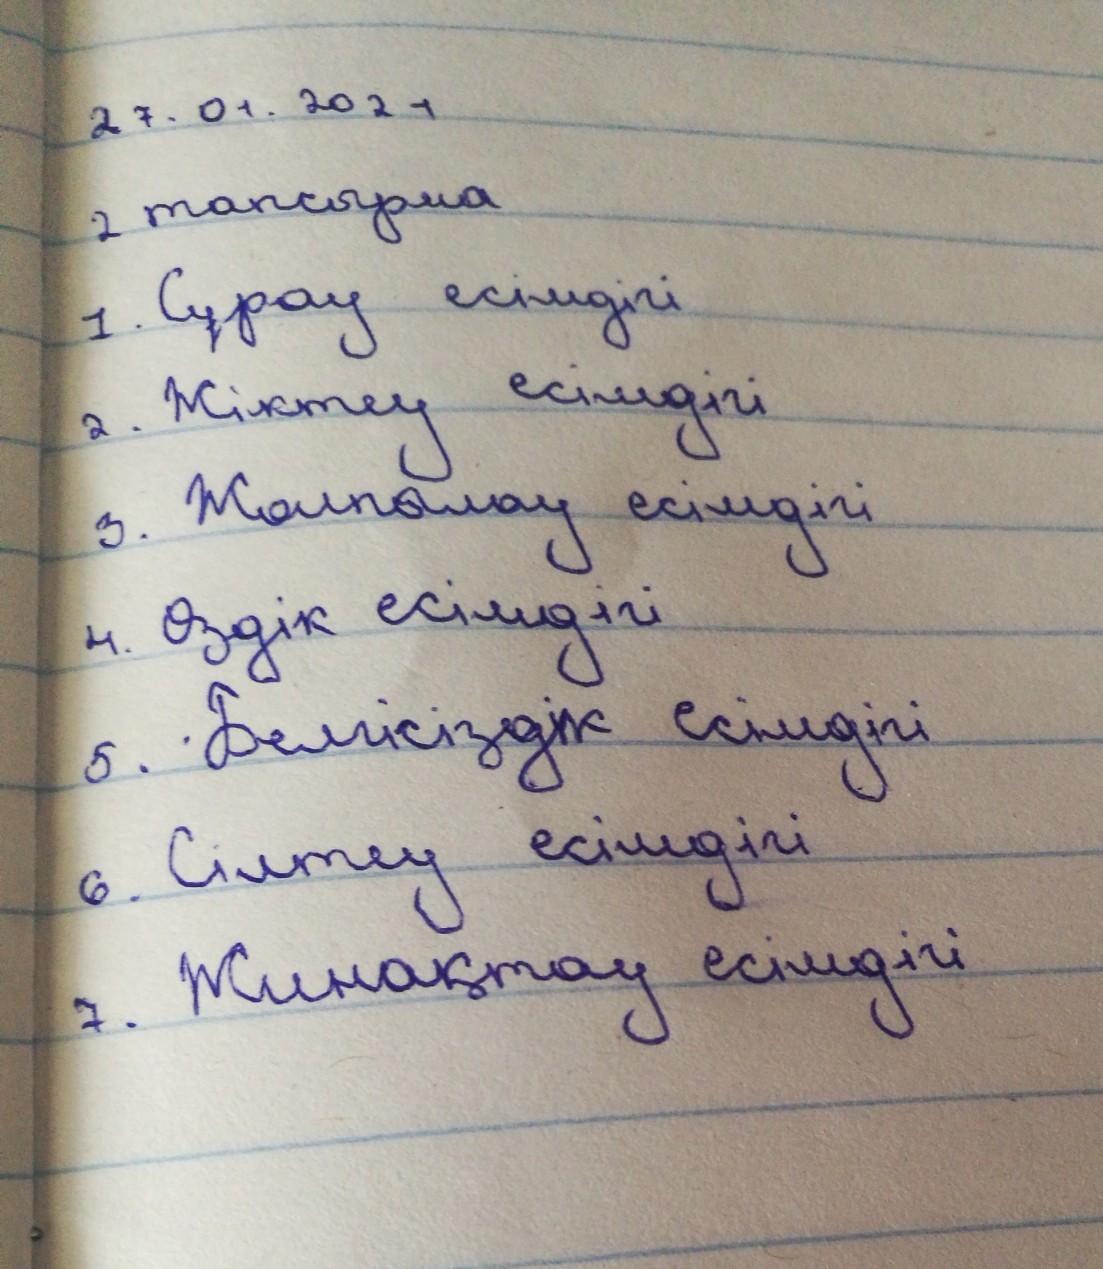 27.01.2021
2 тапсырма
1. Сұрау есімдігі
2. Жіктеу есімдігі
3. Жалпылау есімдігі
4. Өздік есімдігі
5. Белгісіздік есімдігі
6. Сілтеу есімдігі
7. Жинақтау есімдігі